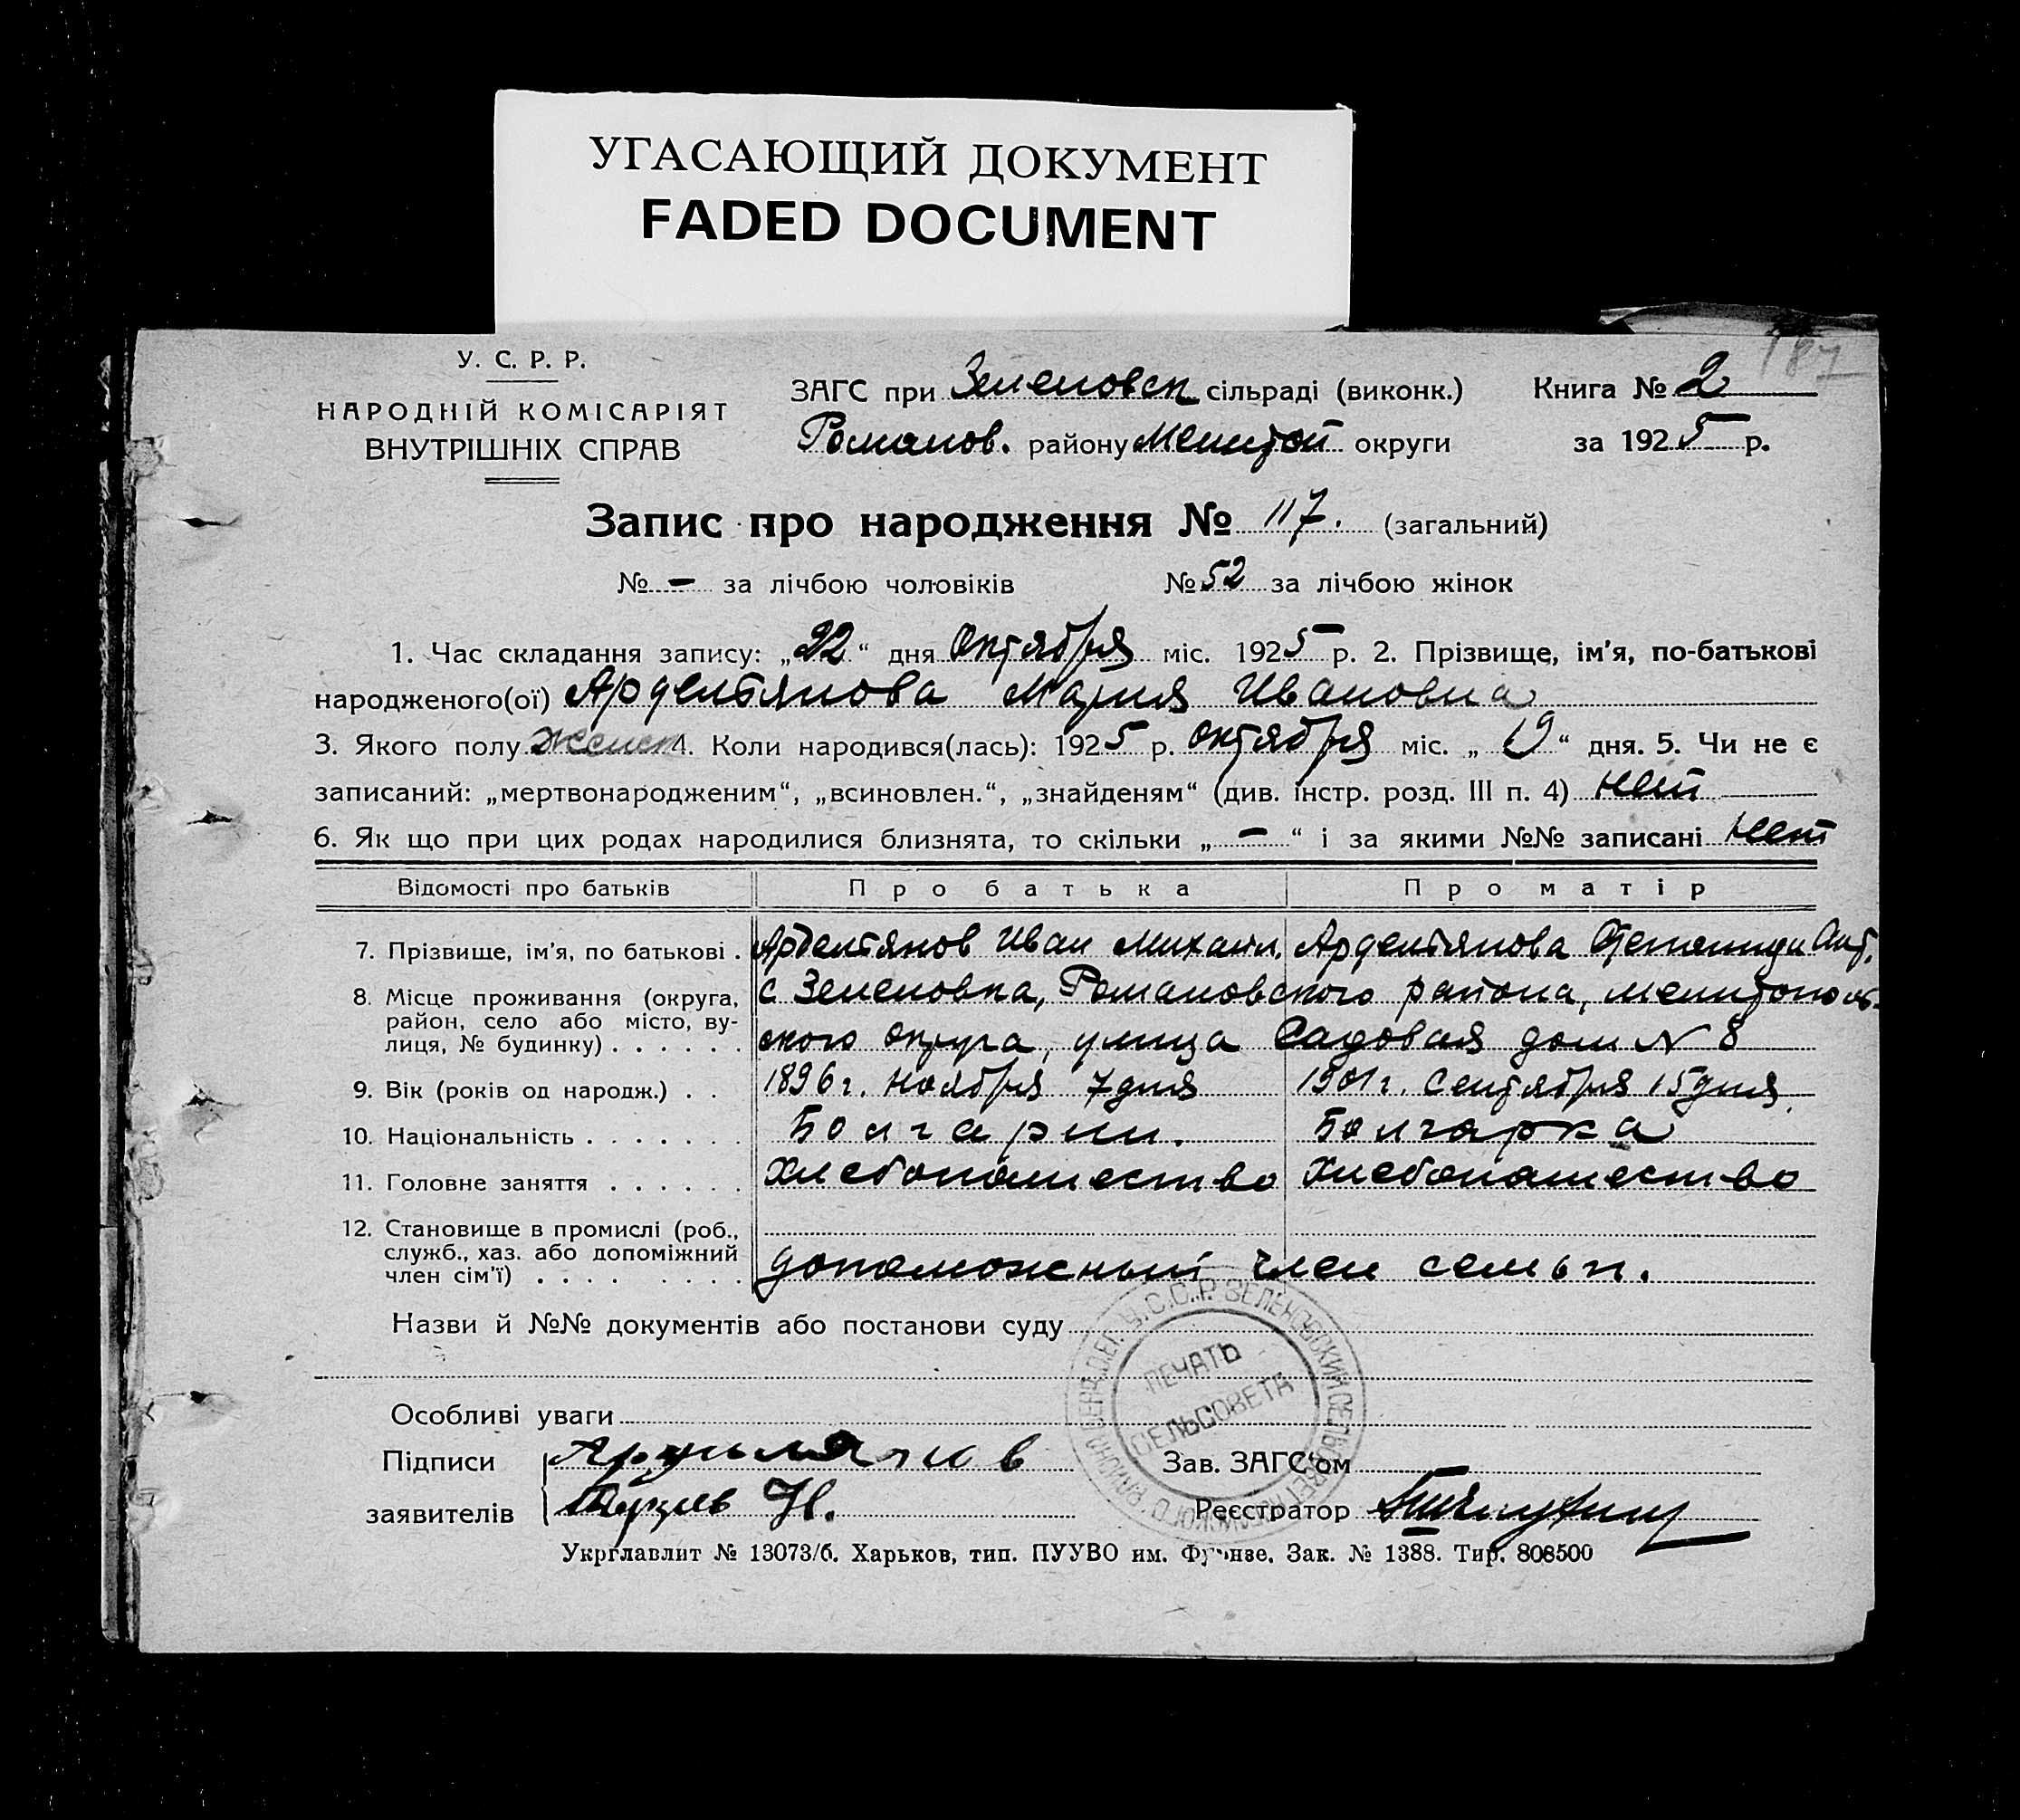 УГАСАЮЩИЙ ДОКУМЕНТ
FADED DOCUMENT
187
У. С. Р. Р.
НАРОДНІЙ КОМІСАРІЯТ
ВНУТРІШНІХ СПРАВ
ЗАГС при Зеленовск сільраді (виконк.) Книга № 2
Романов. району Мелитоп округи за 1925 р.
Запис про народження № 117. (загальний)
№ — за лічбою чоловіків № 52 за лічбою жінок
1. Час складання запису: „22“ дня Октября міс. 1925 р. 2. Прізвище, ім'я, по-батькові
народженого(ої) Ардельянова Мария Ивановна
3. Якого полу женск 4. Коли народився(лась): 1925 р. Октября міс. „19“ дня. 5. Чи не є
записаний: „мертвонародженим“, „всиновлен.“, „знайденям“ (див. інстр. розд. III п. 4) нет
6. Як що при цих родах народилися близнята, то скільки „—“ і за якими №№ записані нет
Відомості про батьків Про батька Про матір
7. Прізвище, ім'я, по батькові . Ардельянов Иван Михаил. Ардельянова
8. Місце проживання (округа, район, село або місто, вулиця, № будинку) . . . . . . с Зеленовка, Романовского района, мелитополь-
ского округа, улица Садовая дом № 8
9. Вік (років од народж.) . . 1896 г. Ноября 7 дня 1901 г. Сентября 15 дня
10. Національність . . . . . . . Болгарин. Болгарка
11. Головне заняття . . . . . . Хлебопашество Хлебопашество
12. Становище в промислі (роб., служб., хаз. або допоміжний член сім'ї) . . . . . . . .
допоможный член семьи.
Назви й №№ документів або постанови суду
Особливі уваги
Підписи
заявителів
Зав. ЗАГС'ом
Реєстратор
У.С.С.Р. ЗЕЛЕНОВСКИЙ СЕЛЬСОВЕТ
ПЕЧАТЬ
СЕЛЬСОВЕТА
Укрглавлит № 13073/б. Харьков, тип. ПУУВО им. Фрунзе. Зак. № 1388. Тир. 808500